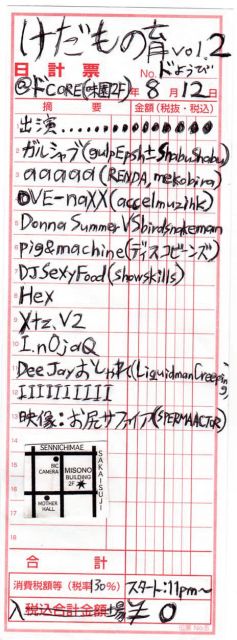 けだもの育 vol.2
日計票 No. ドようび
@ドCORE(味園2F) 年 8月12日
摘要 金額(税抜・税込)
出演
2 ガルシャブ(gulpEpsh±Shabushabu)
3 aaaaa(RENDA, mekobira)
OVE-naXX(accelmuzihk)
5 Donna Summer VS birdsnakeman
6 pig&machine(ディスコビーンズ)
7 DJ Sexy Food(showskills)
8 Hex
9 Xtz.V2
10 I.nOjaQ
11 DeeJayおしゃれ(LiquidmanCreeping)
12 IIIIIIIIII
13 映像:お尻サファイア(SPERMAACTOR)
14
15
16
17
18
SENNICHIMAE
SAKAISUJI
BIC CAMERA
MISONO BUILDING 2F
MOTHER HALL
合計
消費税額等(税率150%) スタート:11pm~
入税込合計金額場 ¥0